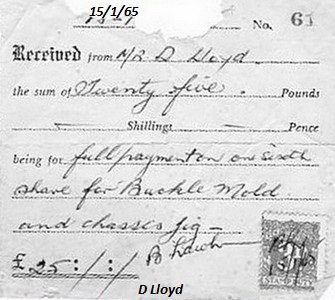 15/1/65
No. 61
Received from Mr D Lloyd.
the sum of Twenty five. Pounds
Shillings Pence
being for full payment on one sixth
share for Buckle Mold
and chasses jig
£25:/:/
STAMP DUTY
D Lloyd